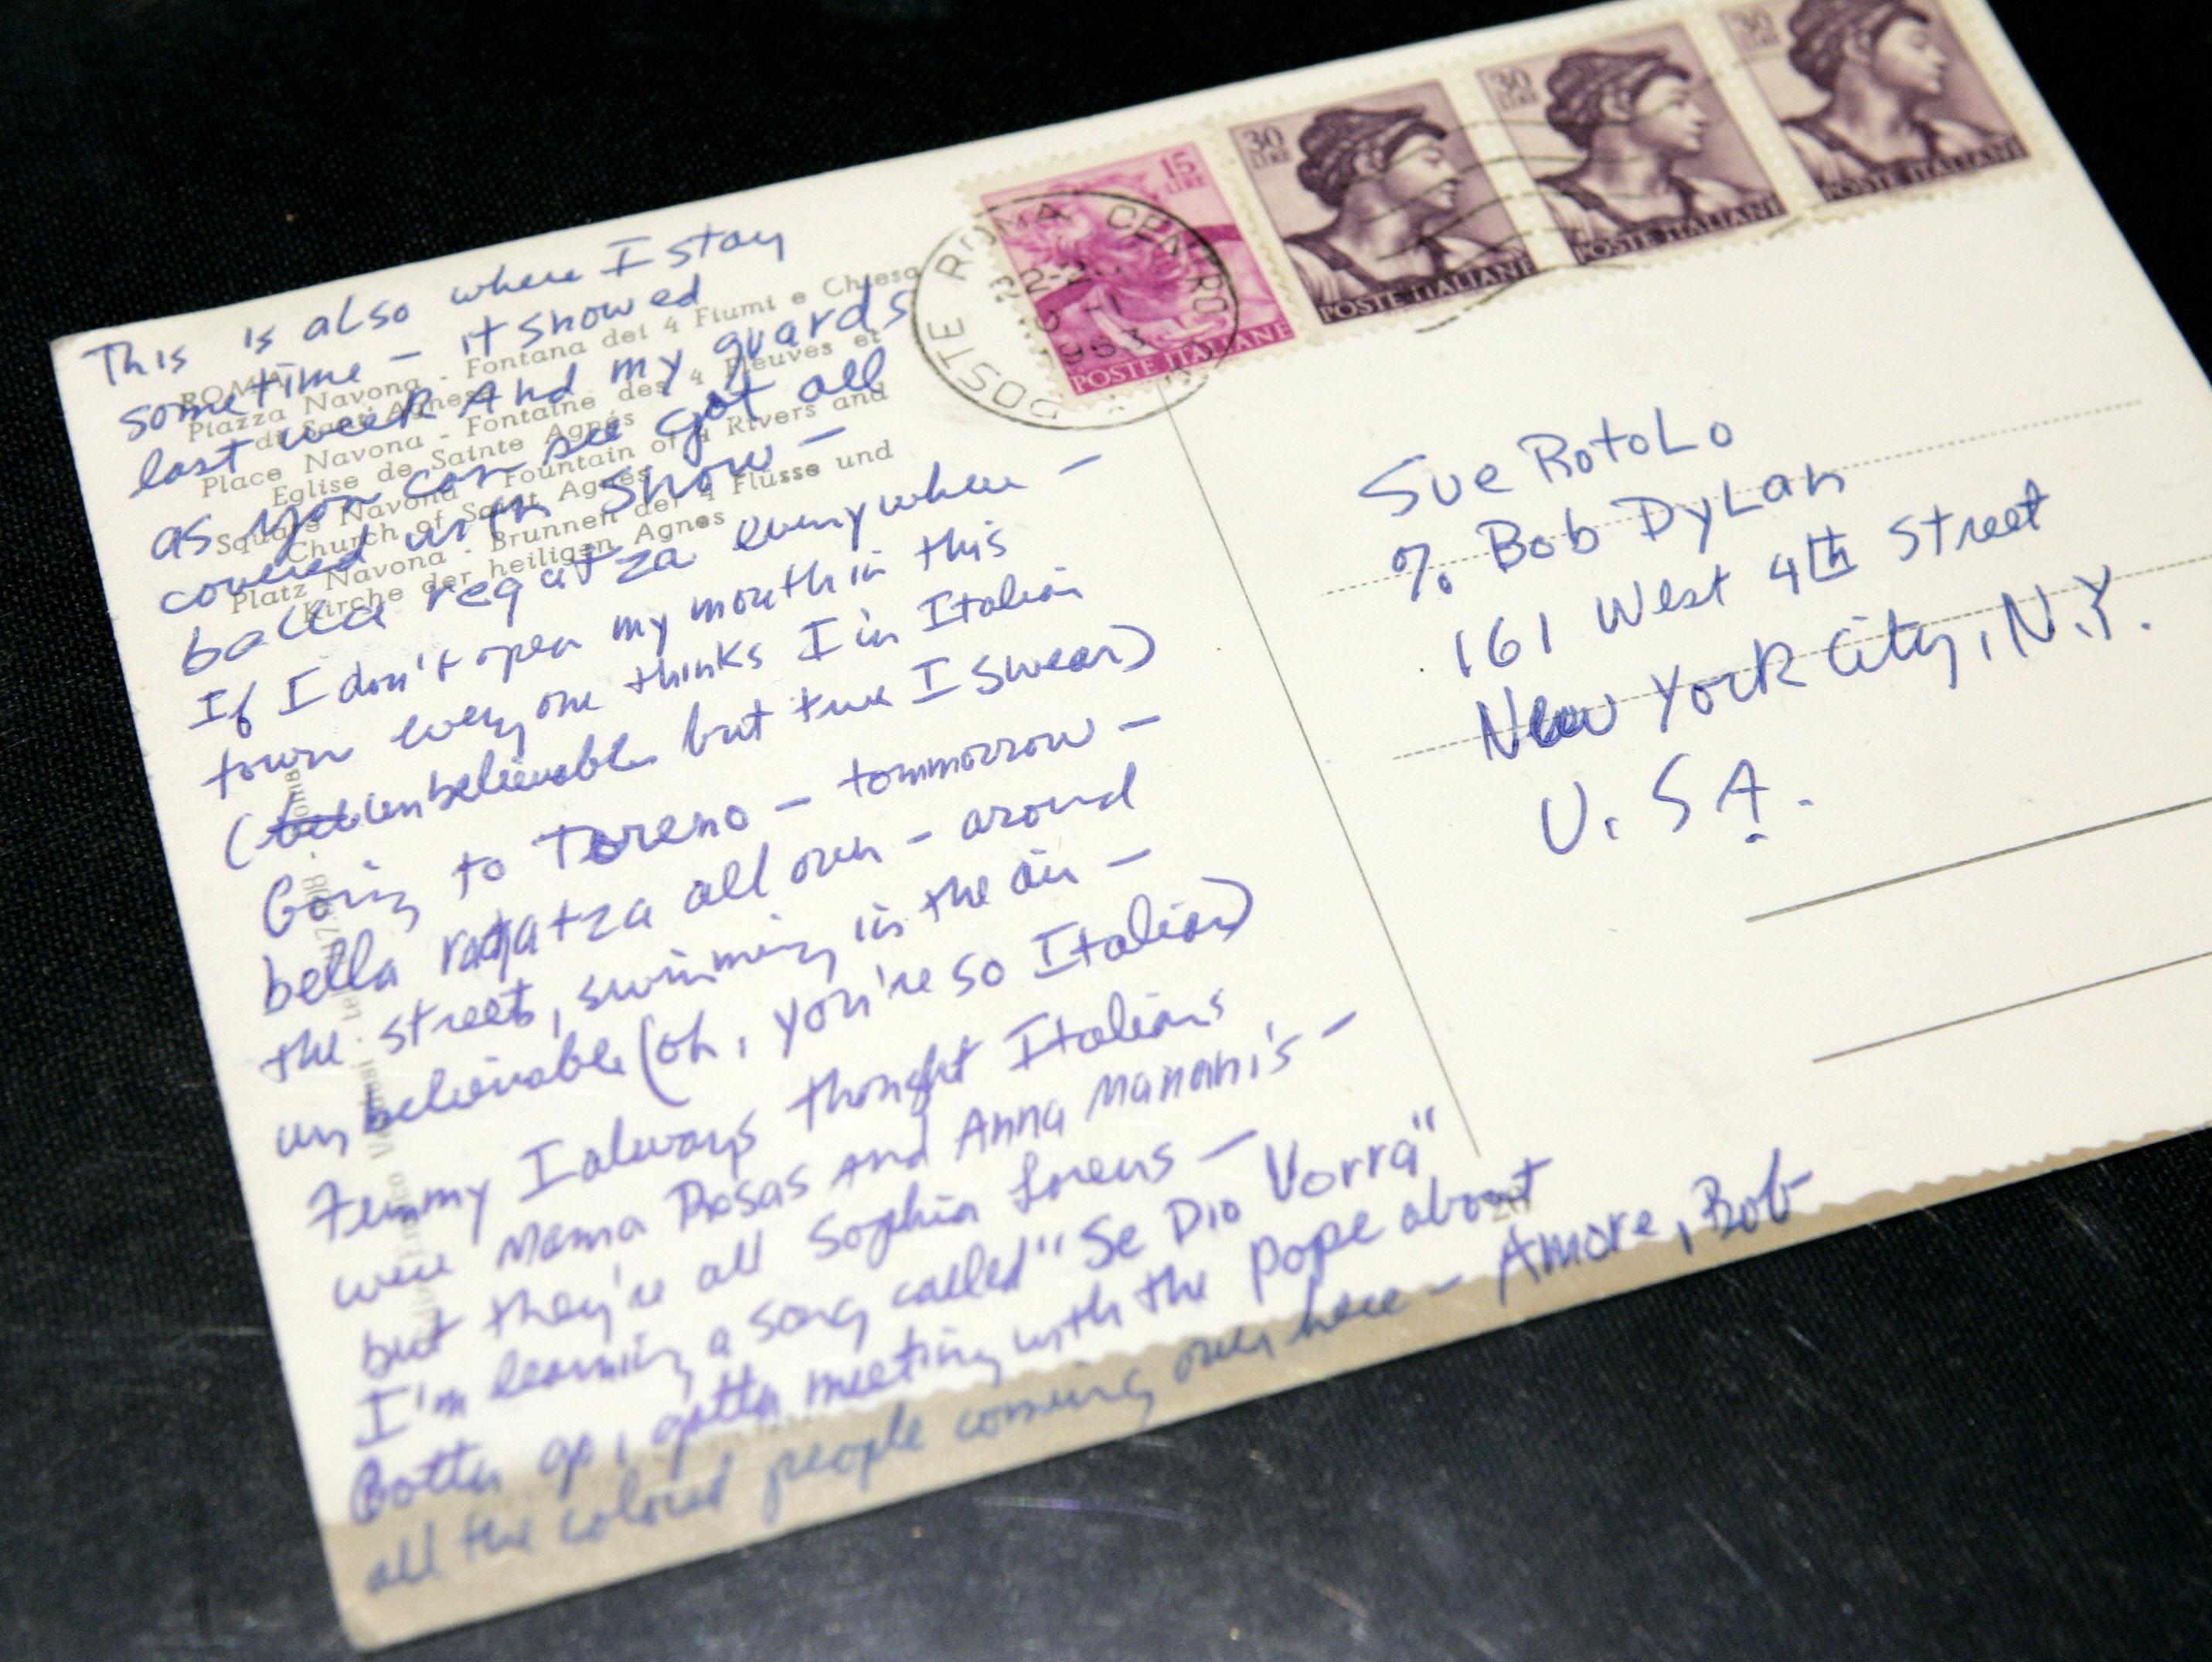 This is also where I stay
sometime - it snowed
last week And my guards
as you can see got all
covered with snow -
balla regatza everywhere -
If I don't open my mouth in this
town every one thinks I in Italian
(but unbelievable but true I swear)
Going to Toreno - tommorrow -
bella ragatza all over - around
the street, swimming in the air -
unbelievable (oh, you're so Italian)
Funny I always thought Italians
were Mama Rosas and Anna Manani's -
but they're all Sophia Lorens -
I'm learning a song called "Se Dio Vorra"
Gotta go, gotta meeting with the Pope about
all the colored people coming over here - Amore, Bob
ROMA
Piazza Navona - Fontana dei 4 Fiumi e Chiesa
di Sant'Agnese
Place Navona - Fontaine des 4 Fleuves et
Eglise de Sainte Agnès
Square Navona - Fountain of 4 Rivers and
Church of Saint Agnes
Platz Navona - Brunnen der 4 Flüsse und
Kirche der heiligen Agnes
POSTE ROMA CENTRO
1963
15 LIRE
POSTE ITALIANE
30 LIRE
POSTE ITALIANE
30 LIRE
POSTE ITALIANE
30 LIRE
POSTE ITALIANE
Sue RotoLo
% Bob DyLan
161 West 4th Street
New York City, N.Y.
U.S.A.